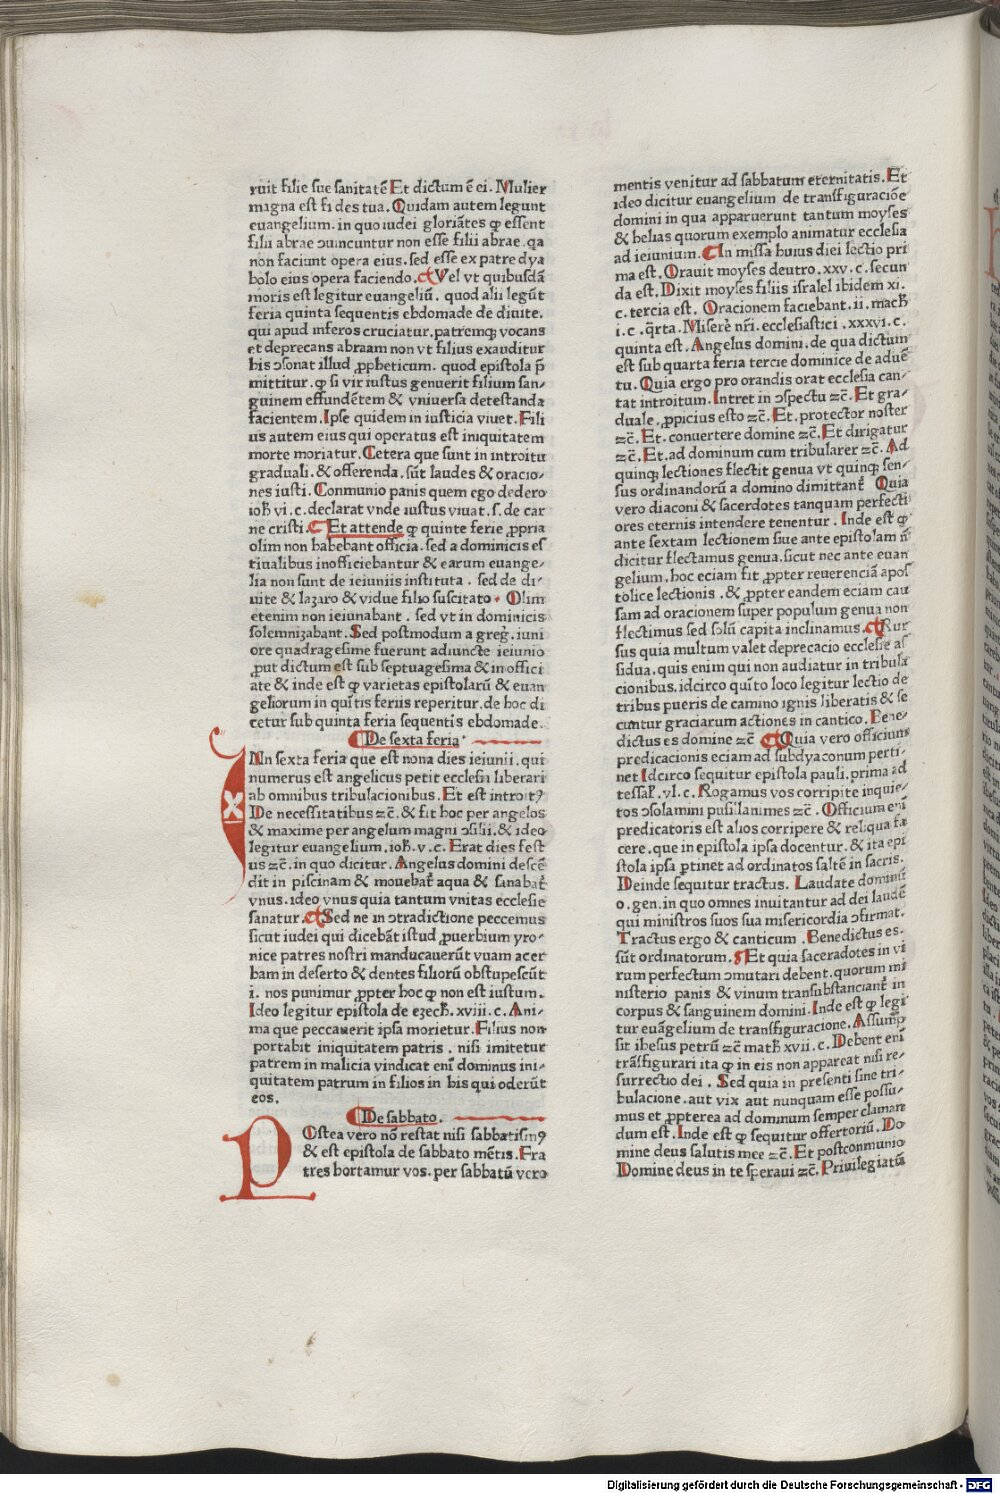 ruit filie sue sanitatē Et dictum ē ei. Mulier
magna est fides tua. Quidam autem legunt
euangelium. in quo iudei gloriātes ꝙ essent
filii abrae ɔuincuntur non esse filii abrae. qa
non faciunt opera eius. sed esse ex patre dya
bolo eius opera faciendo. ¶ Vel vt quibusdā
moris est legitur euangeliū. quod alii legūt
feria quinta sequentis ebdomade de diuite.
qui apud inferos cruciatur. patremqꝫ vocans
et deprecans abraam non vt filius exauditur
his ɔsonat illud ꝓpheticum. quod epistola p̄
mittitur. ꝙ si vir iustus genuerit filium san-
guinem effundētem & vniuersa detestanda
facientem. Ipse quidem in iusticia viuet. Fili
us autem eius qui operatus est iniquitatem
morte moriatur. Cetera que sunt in introitu
graduali. & offerenda. sūt laudes & oracio-
nes iusti. Conmunio panis quem ego dedero
ioh̄ vi. c. declarat vnde iustus viuat. s. de car
ne cristi. ¶ Et attende ꝙ quinte ferie ꝓpria
olim non habebant officia. sed a dominicis es
tiualibus inofficiebantur & earum euange-
lia non sunt de ieiuniis instituta. sed de di-
uite & lazaro & vidue filio suscitato. Olim
etenim non ieiunabant. sed vt in dominicis
solemnizabant. Sed postmodum a greg̉. iuni
ore quadragesime fuerunt adiuncte ieiunio
ꝓut dictum est sub septuagesima & in offici
ate & inde est ꝙ varietas epistolarū & euan
geliorum in quītis feriis reperitur. de hoc di
cetur sub quinta feria sequentis ebdomade.
¶ De sexta feria.
IN sexta feria que est nona dies ieiunii. qui
numerus est angelicus petit ecclesia liberari
ab omnibus tribulacionibus. Et est introitꝰ
De necessitatibus ⁊c̄. & fit hoc per angelos
& maxime per angelum magni ɔsilii. & ideo
legitur euangelium. ioh̄. v. c. Erat dies fest
us ⁊c̄. in quo dicitur. Angelus domini descē
dit in piscinam & mouebat̄ aqua & sanabat̄
vnus. ideo vnus quia tantum vnitas ecclesie
sanatur. ¶ Sed ne in ɔtradictione peccemus
sicut iudei qui dicebāt istud ꝓuerbium yro-
nice patres nostri manducauerūt vuam acer
bam in deserto & dentes filiorū obstupescūt
i. nos punimur ꝓpter hoc ꝙ non est iustum.
Ideo legitur epistola de ezech̄. xviii. c. Ani-
ma que peccauerit ipsa morietur. Filius non
portabit iniquitatem patris. nisi imitetur
patrem in malicia vindicat enī dominus ini-
quitatem patrum in filios in his qui oderūt
eos.
¶ De sabbato.
POstea vero nō restat nisi sabbatismꝰ
& est epistola de sabbato mētis. Fra
tres hortamur vos. per sabbatū vero
mentis venitur ad sabbatum eternitatis. Et
ideo dicitur euangelium de transfiguraciōe
domini in qua apparuerunt tantum moyses
& helias quorum exemplo animatur ecclesia
ad ieiunium. ¶ In missa huius diei lectio pri
ma est. Orauit moyses deutro. xxv. c. secun
da est. Dixit moyses filiis israhel ibidem xi.
c. tercia est. Oracionem faciebant. ii. mach̄
i. c. q̄rta. Miserer̄ nr̄i. ecclesiastici. xxxvi. c.
quinta est. Angelus domini. de qua dictum
est sub quarta feria tercie dominice de aduē
tu. Quia ergo pro orandis orat ecclesia can-
tat introitum. Intret in ɔspectu ⁊c̄. Et gra-
duale. ꝓpicius esto ⁊c̄. Et. protector noster
⁊c̄. Et. conuertere domine ⁊c̄. Et dirigatur
⁊c̄. Et. ad dominum cum tribularer ⁊c̄. Ad
quinqꝫ lectiones flectit genua vt quinqꝫ sen-
sus ordinandorū a domino dimittant̄ Quia
vero diaconi & sacerdotes tanquam perfecti
ores eternis intendere tenentur. Inde est ꝙ
ante sextam lectionem siue ante epistolam n̄
dicitur flectamus genua. sicut nec ante euan
gelium. hoc eciam fit ꝓpter reuerenciā apos
tolice lectionis. & ꝓpter eandem eciam cau
sam ad oracionem super populum genua non
flectimus sed solū capita inclinamus. ¶ Rur
sus quia multum valet deprecacio ecclesie as
sidua. quis enim qui non audiatur in tribula
cionibus. idcirco quīto loco legitur lectio de
tribus pueris de camino ignis liberatis & se
cuntur graciarum actiones in cantico. Bene-
dictus es domine ⁊c̄ ¶ Quia vero officium
predicacionis eciam ad subdyaconum perti-
net Idcirco sequitur epistola pauli. prima ad
tessal̄. vl. c. Rogamus vos corripite inquie-
tos ɔsolamini pusillanimes ⁊c̄. Officium enī
predicatoris est alios corripere & reliqua fa
cere. que in epistola ipsa docentur. & ita epi
stola ipsa ꝑtinet ad ordinatos saltē in sacris.
Deinde sequitur tractus. Laudate dominū
o. gen. in quo omnes inuitantur ad dei laudē
qui ministros suos sua misericordia ɔfirmat.
Tractus ergo & canticum. Benedictus es.
sūt ordinatorum. ¶ Et quia sacerdotes in vi
rum perfectum ɔmutari debent. quorum mi
nisterio panis & vinum transubstanciant̄ in
corpus & sanguinem domini. Inde est ꝙ legi
tur euāgelium de transfiguracione. Assump
sit ihesus petrū ⁊c̄ math̄ xvii. c. Debent enī
trāsfigurari ita ꝙ in eis non appareat nisi re-
surrectio dei. Sed quia in presenti sine tri-
bulacione. aut vix aut nunquam esse possu-
mus et ꝓpterea ad dominum semper claman
dum est. Inde est ꝙ sequitur offertoriū. Do
mine deus salutis mee ⁊c̄. Et postconmunio
Domine deus in te speraui ⁊c̄. Priuilegiatū
Digitalisierung gefördert durch die Deutsche Forschungsgemeinschaft - DFG